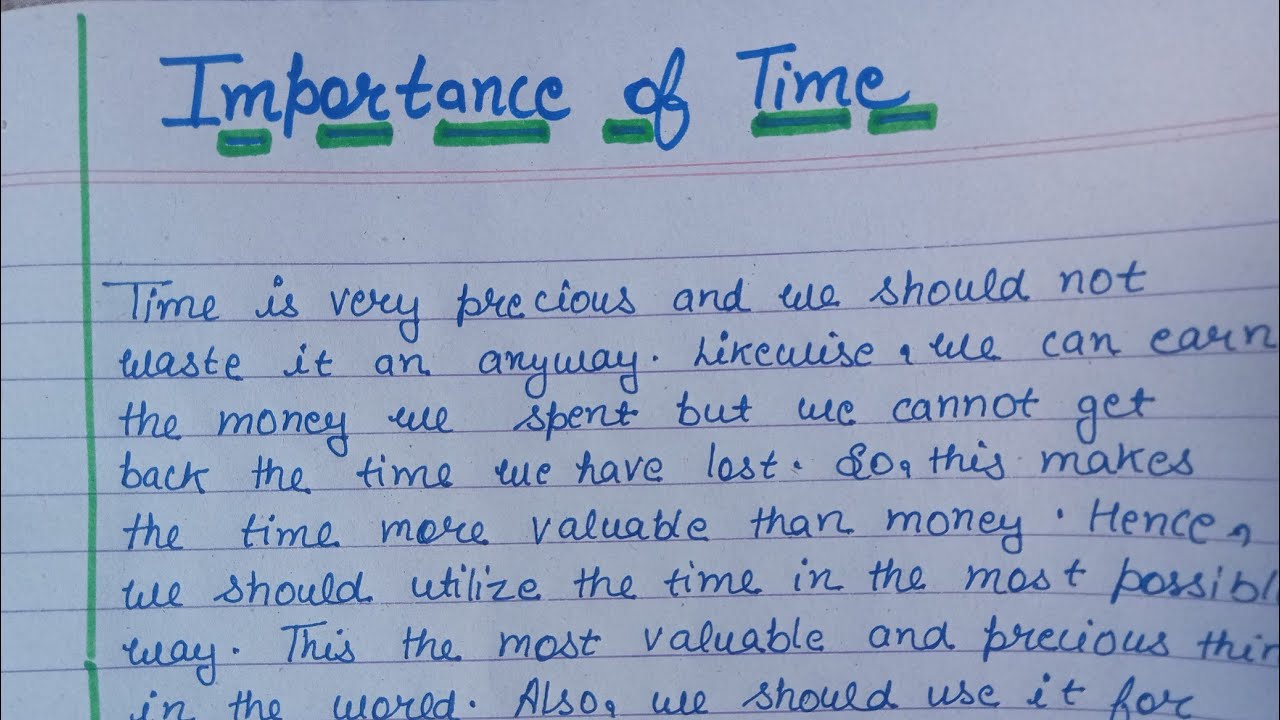 Importance of Time
Time is very precious and we should not
waste it an anyway. Likewise, we can earn
the money we spent but we cannot get
back the time we have lost. So, this makes
the time more valuable than money. Hence,
we should utilize the time in the most possibl
way. This the most valuable and precious thin
in the wored. Also, we should use it for